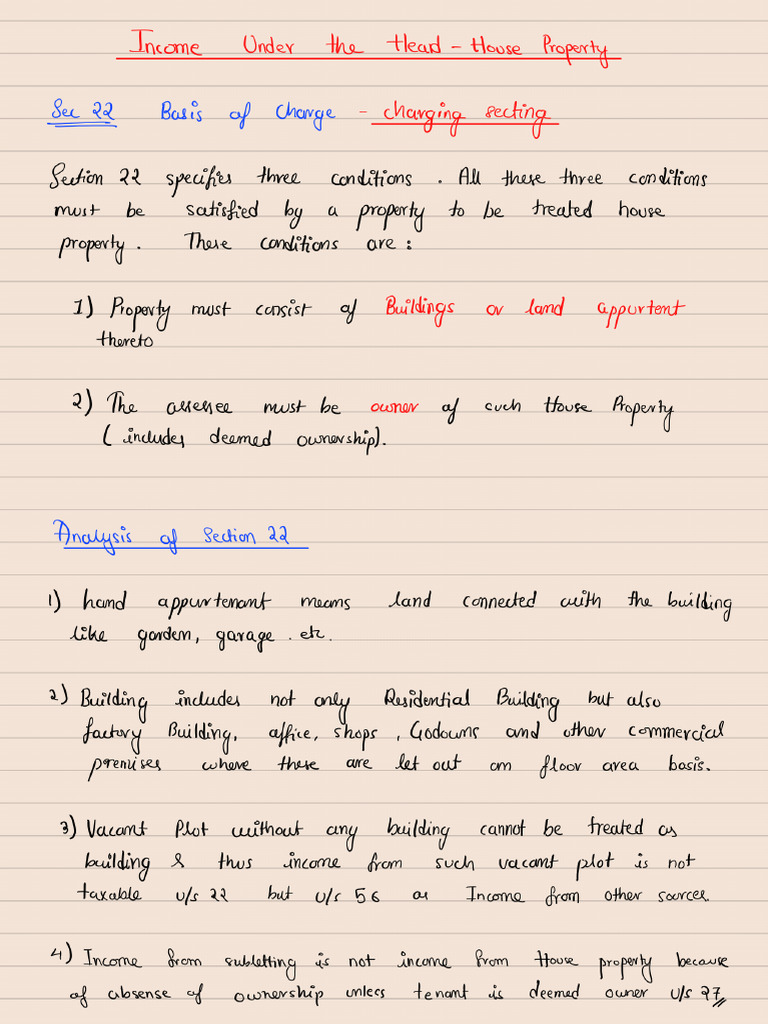 Income Under the Head - House Property
Sec 22 Basis of Charge - charging secting
Section 22 specifies three conditions. All these three conditions
must be satisfied by a property to be treated house
property. These conditions are:
1) Property must consist of Buildings or land appurtent
thereto
2) The assessee must be owner of such House Property
(includes deemed ownership).
Analysis of Section 22
1) Land appurtenant means land connected with the building
like garden, garage. etc.
2) Building includes not only Residential Building but also
factory Building, office, shops, Godowns and other commercial
premises where these are let out on floor area basis.
3) Vacant Plot without any building cannot be treated as
building & thus income from such vacant plot is not
taxable u/s 22 but u/s 56 as Income from other sources.
4) Income from subletting is not income from House property because
of absense of ownership unless tenant is deemed owner u/s 27